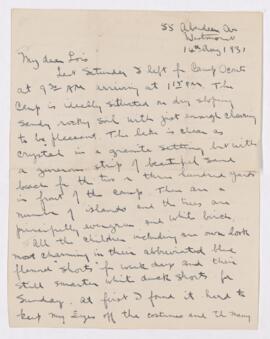 55 Aberdeen Av
Westmount
16th Aug 1931
My dear Lois
Last Saturday I left for Camp
at 9 AM arriving at 1 PM. The
Camp is ideally situated on dry sloping
sandy rocky soil with just enough clearing
to be pleasant. The lake is clear as
crystal in a granite setting but with
a generous strip of beautiful sand
beach for the two or three hundred yards
in front of the Camp. There are a
number of islands and the trees are
principally evergreen and white birch.
All the children including our own look
most charming in their abbreviated blue
flannel "shorts" for week days and their
still smarter white duck shorts for
Sunday. At first I found it hard to
keep my eyes off the costumes and the many